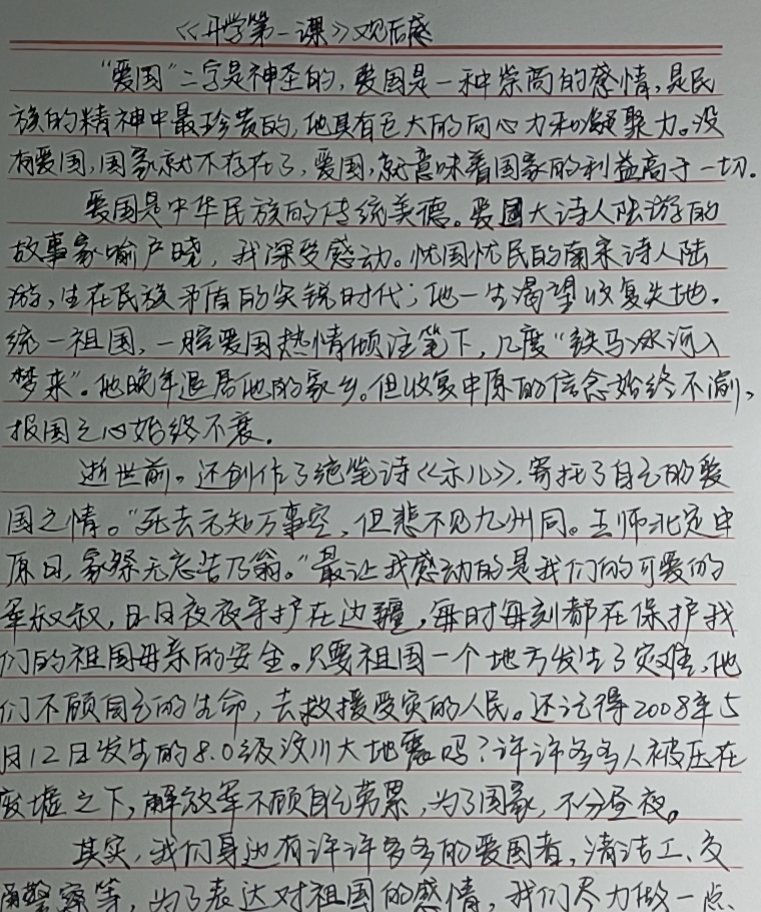 《开学第一课》观后感
“爱国”二字是神圣的，爱国是一种崇高的感情，是民
族的精神中最珍贵的，他具有巨大的向心力和凝聚力。没
有爱国，国家就不存在了，爱国，就意味着国家的利益高于一切.
爱国是中华民族的传统美德。爱国大诗人陆游的
故事家喻户晓，我深受感动。忧国忧民的南宋诗人陆
游，生在民族矛盾的尖锐时代；他一生渴望收复失地，
统一祖国，一腔爱国热情倾注笔下，几度“铁马冰河入
梦来”.他晚年退居他的家乡。但收复中原的信念始终不渝，
报国之心始终不衰.
逝世前。还创作了绝笔诗《示儿》，寄托了自己的爱
国之情。“死去元知万事空，但悲不见九州同。王师北定中
原日，家祭无忘告乃翁。”最让我感动的是我们的可爱的
军叔叔，日日夜夜守护在边疆，每时每刻都在保护我
们的祖国母亲的安全。只要祖国一个地方发生了灾难，他
们不顾自己的生命，去救援受灾的人民。还记得2008年5
月12日发生的8.0级汶川大地震吗？许许多多人被压在
废墟之下，解放军不顾自己劳累，为了国家，不分昼夜。
其实，我们身边有许许多多的爱国者，清洁工、交
通警察等，为了表达对祖国的感情，我们尽力做一点、